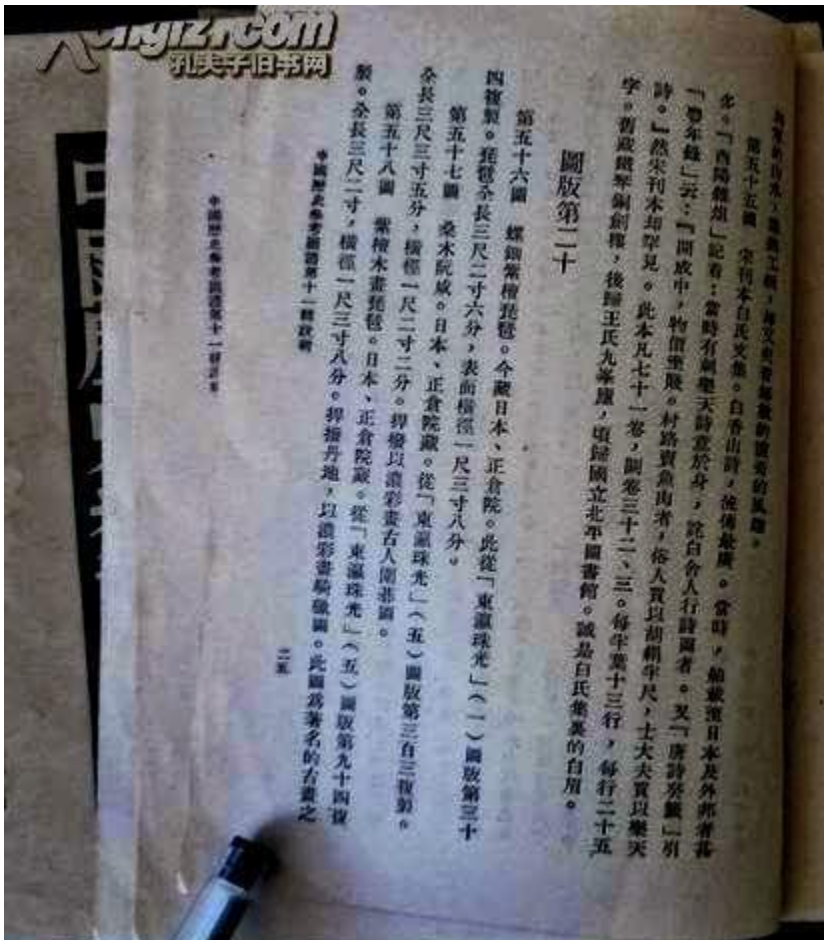 孔夫子旧书网
第五十五圖 宋刊本白氏文集。白香山詩,流傳最廣。當時,船載至日本及外邦者甚
多。「酉陽雜俎」記着:當時有剳樂天詩意於身,詫白舍人行詩圖者。又「唐詩紀」引
「豐年錄」云:『開成中,物價至賤。村路賣魚肉者,俗人買以胡絹半尺,士大夫買以樂天
詩。』然宋刊本却罕見。此本凡七十一卷,闕卷三十二、三。每半葉十三行,每行二十五
字。舊藏鐵琴銅劍樓,後歸王氏九峯廬,頃歸國立北平圖書館。誠是白氏集裏的白眉。
圖版第二十
第五十六圖 螺鈿紫檀琵琶。今藏日本、正倉院。此從「東瀛珠光」(一)圖版第三十
四複製。琵琶全長三尺二寸六分,表面橫徑一尺三寸八分。
第五十七圖 桑木阮咸。日本、正倉院藏。從「東瀛珠光」(五)圖版第三百三複製。
全長三尺三寸五分,橫徑一尺二寸二分。捍撥以濃彩畫古人圍碁圖。
第五十八圖 紫檀木畫琵琶。日本、正倉院藏。從「東瀛珠光」(五)圖版第九十四複
製。全長三尺二寸,橫徑一尺三寸八分。捍撥丹地,以濃彩畫騎獵圖。此圖爲著名的古畫之
中國歷史參考圖譜第十一輯說明
二五
中國歷史參考圖譜第十一輯